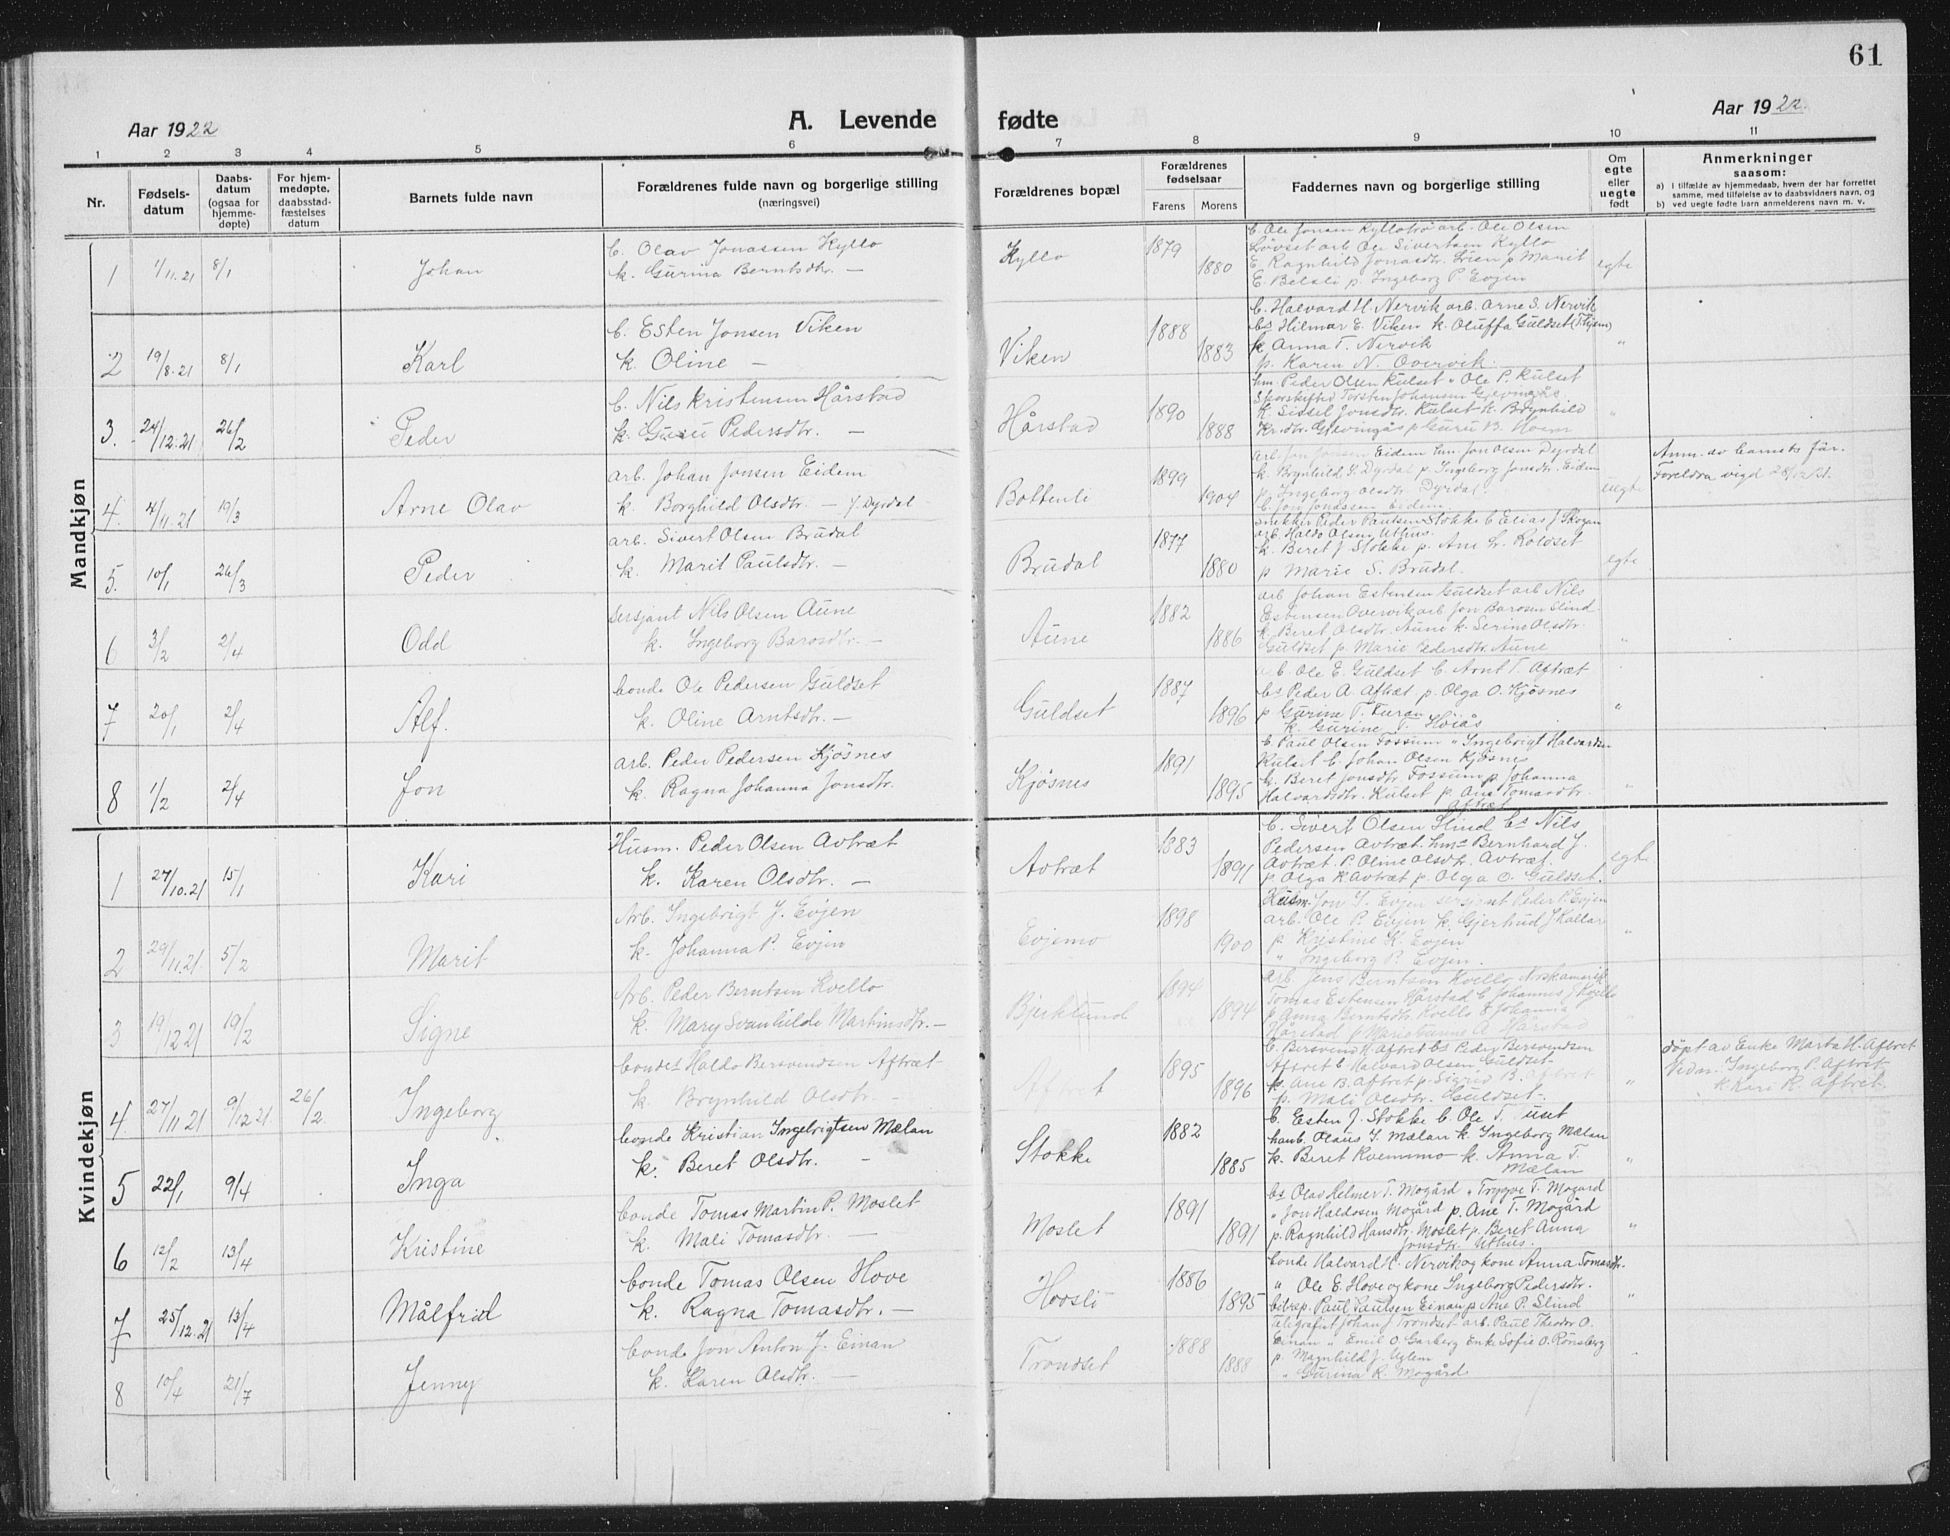 61
Aar 1922
A. Levende
fødte
Aar 1922.
1 2 3 4 5 6 7 8 9 10 11
Nr.
Fødsels-
datum
Daabs-
datum
(ogsaa for
hjemme-
døpte)
For hjem-
medøpte,
daabsstad-
fæstelses
datum
Barnets fulde navn
Forældrenes fulde navn og borgerlige stilling
(næringsvei)
Forældrenes bopæl
Forældrenes
fødselsaar
Farens Morens
Faddernes navn og borgerlige stilling
Om
egte
eller
uegte
født
Anmerkninger
saasom:
a) I tilfælde av hjemmedaab, hvem der har forrettet
samme, med tilføielse av to daabsvidners navn, og
b) ved uegte fødte barn anmelderens navn m. v.
Mandkjøn
1 1/11.21 8/1 Johan
b. Olav Jonassen Kyllo
k. Gurina Berntsdtr. —
Kyllo 1879 1880
b. Ole Jonsen Kyllotrø arb. Ole Olsen
Løvset arb Ole Sivertsen Kyllo
E. Ragnhild Jonasdtr. Lien p Marit
E. Belsli p. Ingeborg P. Evjen
egte
2 19/8.21 8/1 Karl
b. Esten Jonsen Viken
k. Oline —
Viken 1888 1883
b. Halvard H. Nervik arb. Arne S. Nervik
bs Hilmar E. Viken k. Oluffa Guldset (Thjem)
k Anna T. Nervik
p. Karen N. Overvik.
"
3. 24/12.21 26/2 Peder
b. Nils Kristensen Hårstad
k. Guru Pedersdtr. —
Hårstad 1890 1888
hm. Peder Olsen Kulset " Ole P. Kulset
Torsten Johansen Gjevingås
k. Sissel Jonsdtr. Kulset k. Brynhild
Kr.dtr. Gjevingås p Guru B. Hoem
"
4. 4/11.21 19/3 Arne Olav
arb. Johan Jonsen Eidem
k. Borghild Olsdtr. — f. Dyrdal
Bottenli 1899 1904
arb. Jon Jonsen Eidem hm. Jon Olsen Dyrdal
k. Brynhild S. Dyrdal p. Ingeborg Jonsdtr. Eidem
p. Ingeborg Olsdtr. Dyrdal.
b. Jon Jonassen Eidem
uegte
Anm. av barnets far.
Foreldra vigd 28/12 21.
5. 10/1 26/3 Peder
arb. Sivert Olsen Brudal
k. Marit Paulsdtr. —
Brudal 1877 1880
snekker Peder Paulsen Stokke b. Elias J Skogan
arb. Haldo Olsen Uthus.
k. Beret J Stokke p. Ane L. Kolöset
p Marie S. Brudal.
egte
6 3/2 2/4 Odd
sersjant Nils Olsen Aune
k. Ingeborg Barosdtr. —
Aune 1882 1886
arb Johan Estensen Guldset arb Nils
Estensen Overvik arb Jon Barosen Slind
k. Beret Olsdtr. Aune k. Serine Olsdtr.
Guldset p. Marie Pedersdtr. Aune
"
7 20/1 2/4 Alf.
bonde Ole Pedersen Guldset
k. Oline Arntsdtr. —
Guldset 1887 1896
b. Ole E. Guldset b. Arnt T. Aftræt
bs Peder A. Aftræt p. Olga O. Kjösnes
p Gurine T. Furan
k. Gurine T. Høiås
"
8 1/2 2/4 Jon
arb. Peder Pedersen Kjösnes
k. Ragna Johanna Jonsdtr.
Kjösnes 1891 1895
b. Paul Olsen Fossum " Ingebrigt Halvardsen
Kulset b. Johan Olsen Kjösnes
k. Beret Jonsdtr. Fossum p. Johanna
Halvardsdtr. Kulset p. Ane Tomasdtr.
Aftræt
"
Kvindekjøn
1 27/10.21 15/1 Kari
Husm. Peder Olsen Avtræt
k. Karen Olsdtr. —
Avtræt 1883 1891
b. Sivert Olsen Slind bs Nils
Pedersen Avtræt. hms Bernhard J.
Avtræt. P. Oline Olsdtr. Avtræt.
p Olga K Avtræt p. Olga O. Guldset.
egte
2 29/11.21 5/2 Marit
Arb. Ingebrigt J. Evjen
k. Johanna P. Evjen
Evjemo 1898 1900
Husm. Jon I. Evjen sersjant Peder P. Evjen
arb. Ole P. Evjen k. Gjertrud J Kallar
p Kristine K. Evjen
" Ingeborg P. Evjen.
"
3 19/12 21 19/2 Signe
Arb. Peder Berntsen Kvello
k. Mary Svanhilde Martinsdtr. —
Bjerklund 1894 1894
arb. Jens Berntsen Kvello Norskamerik
Tomas Estensen Hårstad b Johannes J Kvello
p Anna Berntsdtr. Kvello E Johanna
Hårstad p Marie A Hårstad
"
4 27/11 21 9/12 21 26/2. Ingeborg
bondes Haldo Bersvendsen Aftræt
k. Brynhild Olsdtr. —
Aftret 1895 1896
b. Bersvend H. Aftret bs Peder Bersvendsen
Aftret E Halvard Olsen Guldset
k. Ane B. Aftret p. Sigrid B. Aftret
p. Mali Olsdtr. Guldset.
"
döpt av Enke Marta H. Aftret
Vidn. Ingeborg P. Aftret
k. Kari R. Aftret.
5 22/1 9/4 Inga
bonde Kristian Ingebrigtsen Mælan
k. Beret Olsdtr. —
Stokke 1882 1885
b. Esten J. Stokke b. Ole T. Uset
hanb. Olaus I. Mælan k. Ingeborg Mælan
k. Beret Kvemmo k. Anna T.
Mælan
"
6 12/2 13/4 Kristine
bonde Tomas Martin P. Moslet
k. Mali Tomasdtr. —
Moslet 1891 1891
bs Olav Helmer T. Mogård " Trygve T. Mogard
" Jon Haldosen Mogård p. Ane T. Mogård
p. Ragnhild Hansdtr. Moslet p. Beret Anna
Jonsdtr. Uthus.
"
7 25/12.21 13/4 Målfrid
bonde Tomas Olsen Hove
k. Ragna Tomasdtr. —
Hoosli 1886 1895
bonde Halvard H. Nervik og kone Anna Tomasdtr.
" Ole E. Hove og kone Ingeborg Pedersdtr.
Paul Paulsen Einan p Ane P. Slind
"
8 10/4 21/7 Jenny
bonde Jon Anton J. Einan
k. Karen Olsdtr. —
Trondset 1888 1888
Johan J Trondset arb. Paul Theodor O.
Einan " Emil O. Garberg Enke Sofie O. Rönsberg
p. Magnhild J. Uglem
" Gurina K. Mogård